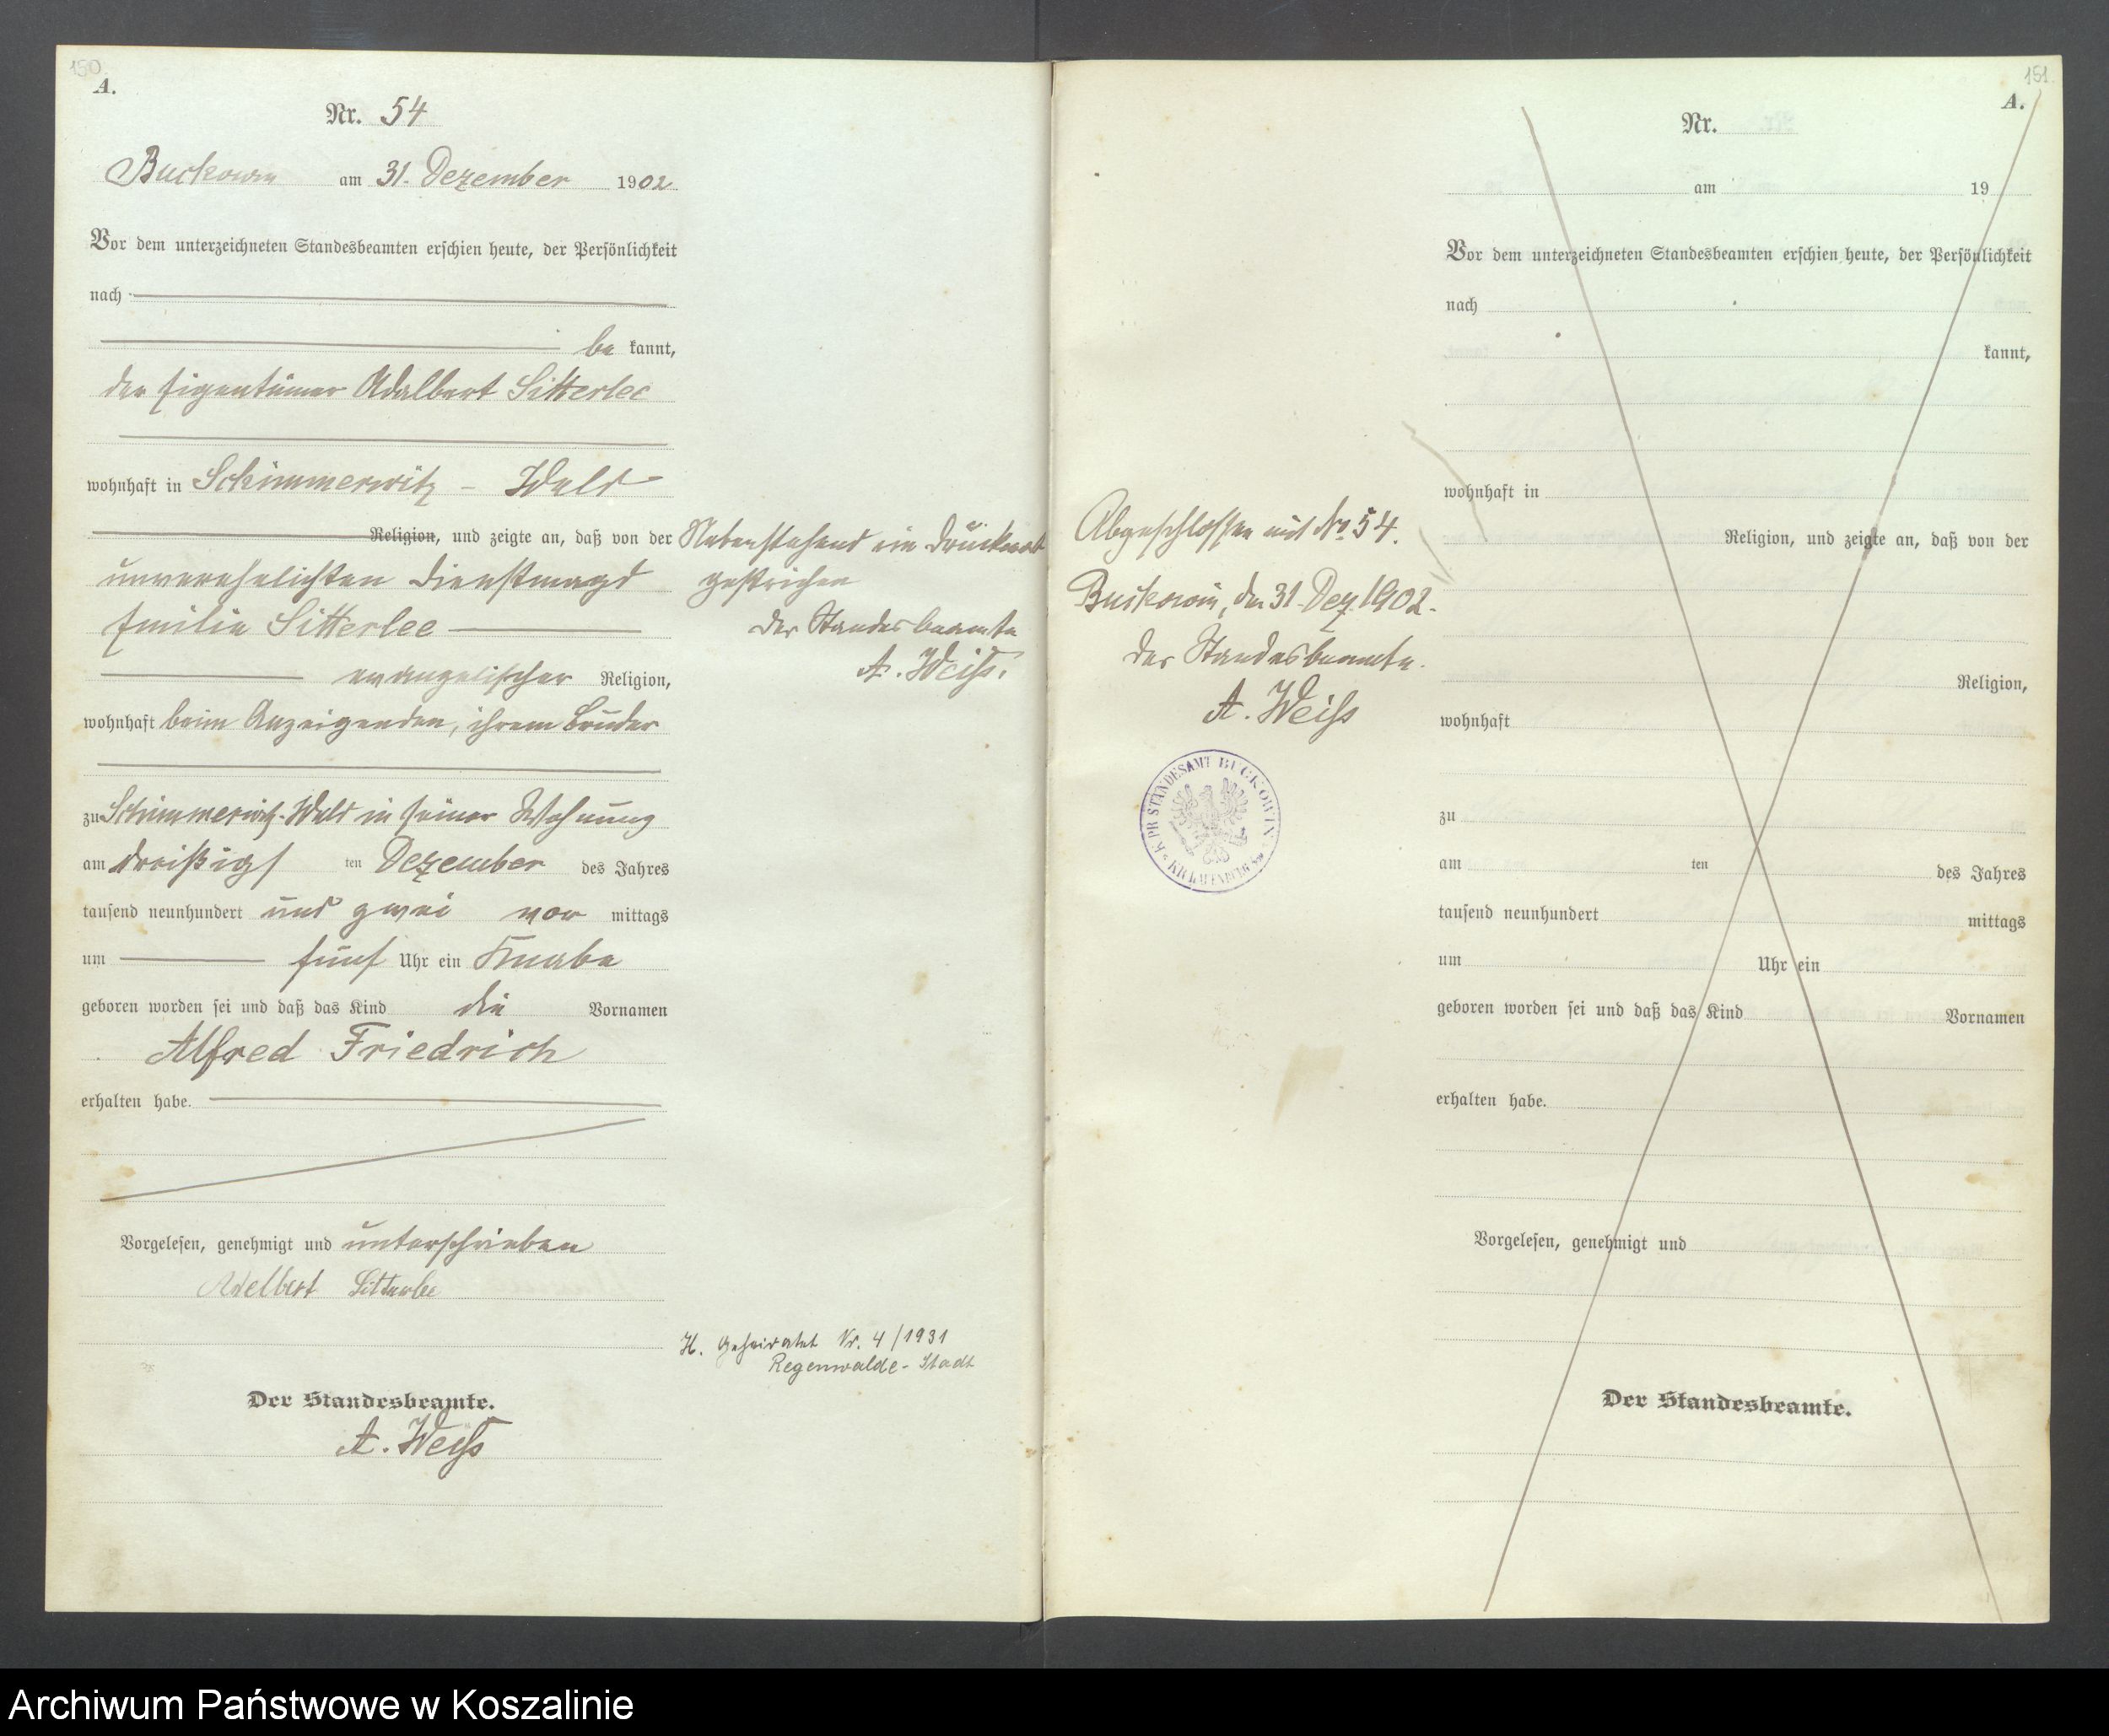 150
A.
Nr. 54
Buckowin am 31. Dezember 1902
Vor dem unterzeichneten Standesbeamten erschien heute, der Persönlichkeit
nach
be kannt,
der Eigentümer Adalbert Sitterlee
wohnhaft in Schimmerwitz - Wald
Religion, und zeigte an, daß von der
unverehelichten Dienstmagd
Emilie Sitterlee
evangelischer Religion,
wohnhaft beim Anzeigenden, ihrem Bruder
zu Schimmerwitz-Wald in seiner Wohnung
am dreißigs ten Dezember des Jahres
tausend neunhundert und zwei vor mittags
um fünf Uhr ein Knabe
geboren worden sei und daß das Kind die Vornamen
Alfred Friedrich
erhalten habe.
Vorgelesen, genehmigt und unterschrieben
Adelbert Sitterlee
Der Standesbeamte.
A. Weiß
Nebenstehend ein Druckwort
gestrichen
Der Standesbeamte
A. Weiß.
H. Geheiratet Nr. 4/1931
Regenwalde-Stadt
Abgeschlossen mit No 54.
Buckowin, den 31. Dez. 1902.
Der Standesbeamte.
A. Weiß
K. PR STANDESAMT BUCKOWIN
KR LAUENBURG
151
A.
Nr.
am 19
Vor dem unterzeichneten Standesbeamten erschien heute, der Persönlichkeit
nach
kannt,
wohnhaft in
Religion, und zeigte an, daß von der
Religion,
wohnhaft
zu
am ten des Jahres
tausend neunhundert mittags
um Uhr ein
geboren worden sei und daß das Kind Vornamen
erhalten habe.
Vorgelesen, genehmigt und
Der Standesbeamte.
Archiwum Państwowe w Koszalinie